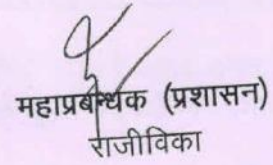 महाप्रबन्धक (प्रशासन)
राजीविका